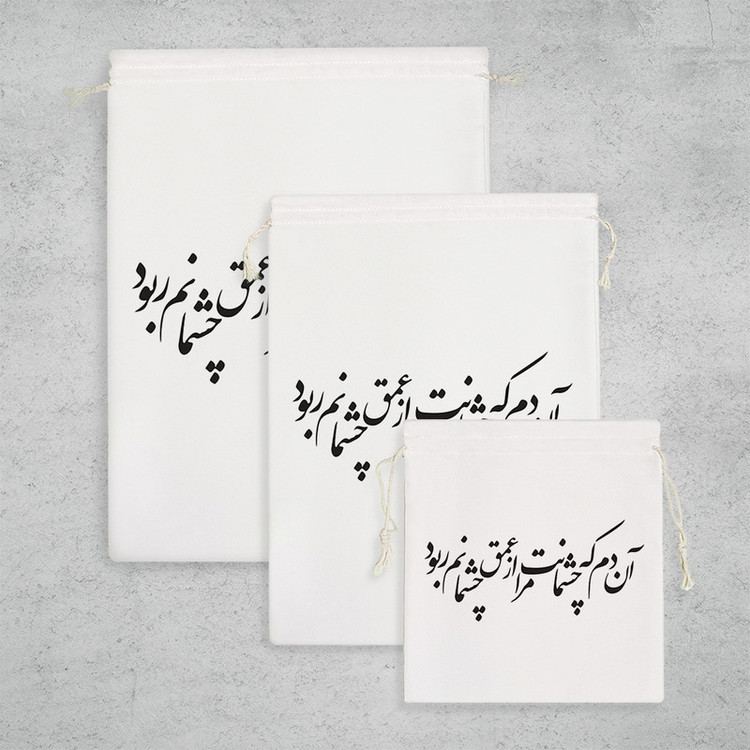 از عمق چشمانم ربود
آن دم که چشمانت از عمق چشمانم ربود
آن دم که چشمانت مرا از عمق چشمانم ربود